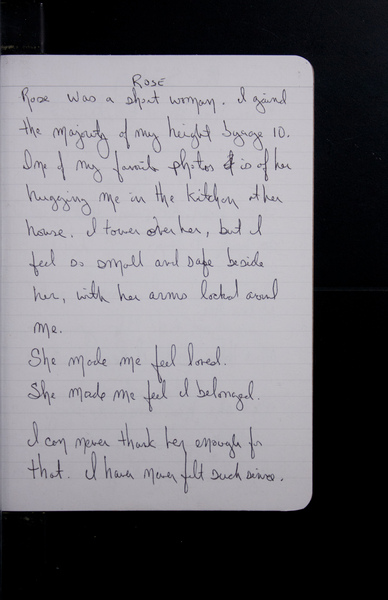 ROSE
Rose was a short woman. I gained
the majority of my height by age 10.
One of my favorite photos is of her
hugging me in the kitchen at her
house. I tower over her, but I
feel so small and safe beside
her, with her arms locked around
me.
She made me feel loved.
She made me feel I belonged.
I can never thank her enough for
that. I have never felt such since.